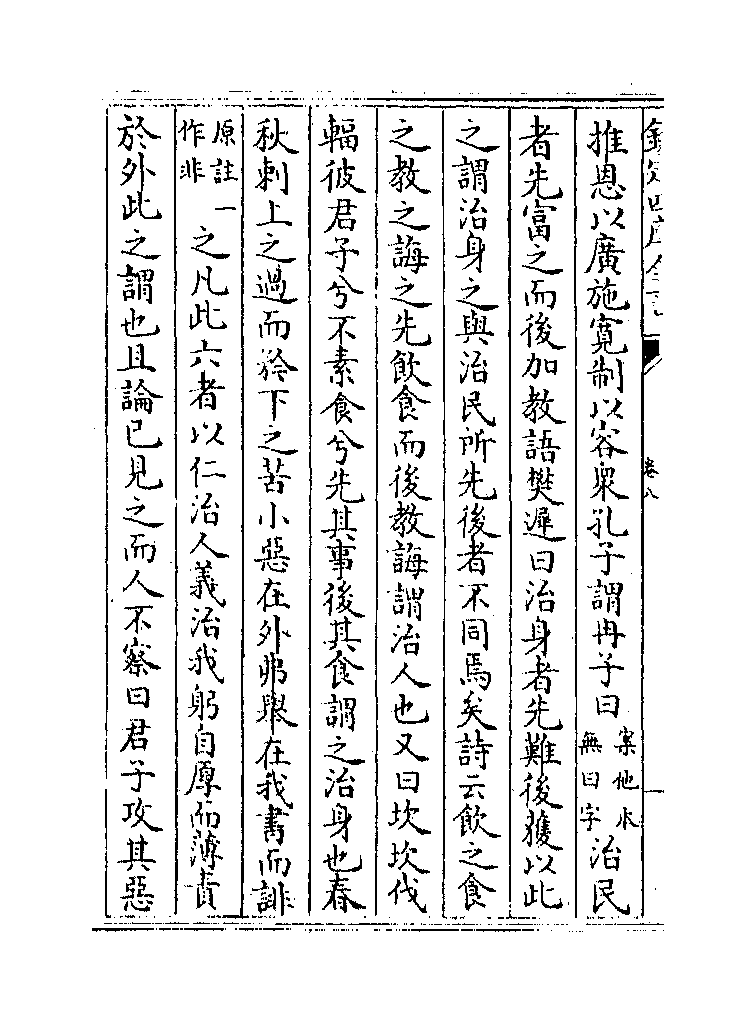 推恩以廣施寛制以容衆孔子謂冉子曰案他本無曰字治民
者先富之而後加教語樊遲曰治身者先難後獲以此
之謂治身之與治民所先後者不同焉矣詩云飲之食
之教之誨之先飲食而後教誨謂治人也又曰坎坎伐
輻彼君子兮不素食兮先其事後其食謂之治身也春
秋刺上之過而矜下之苦小惡在外弗舉在我書而誹
原註一作非之凡此六者以仁治人義治我躬自厚而薄責
於外此之謂也且論已見之而人不察曰君子攻其惡
卷八